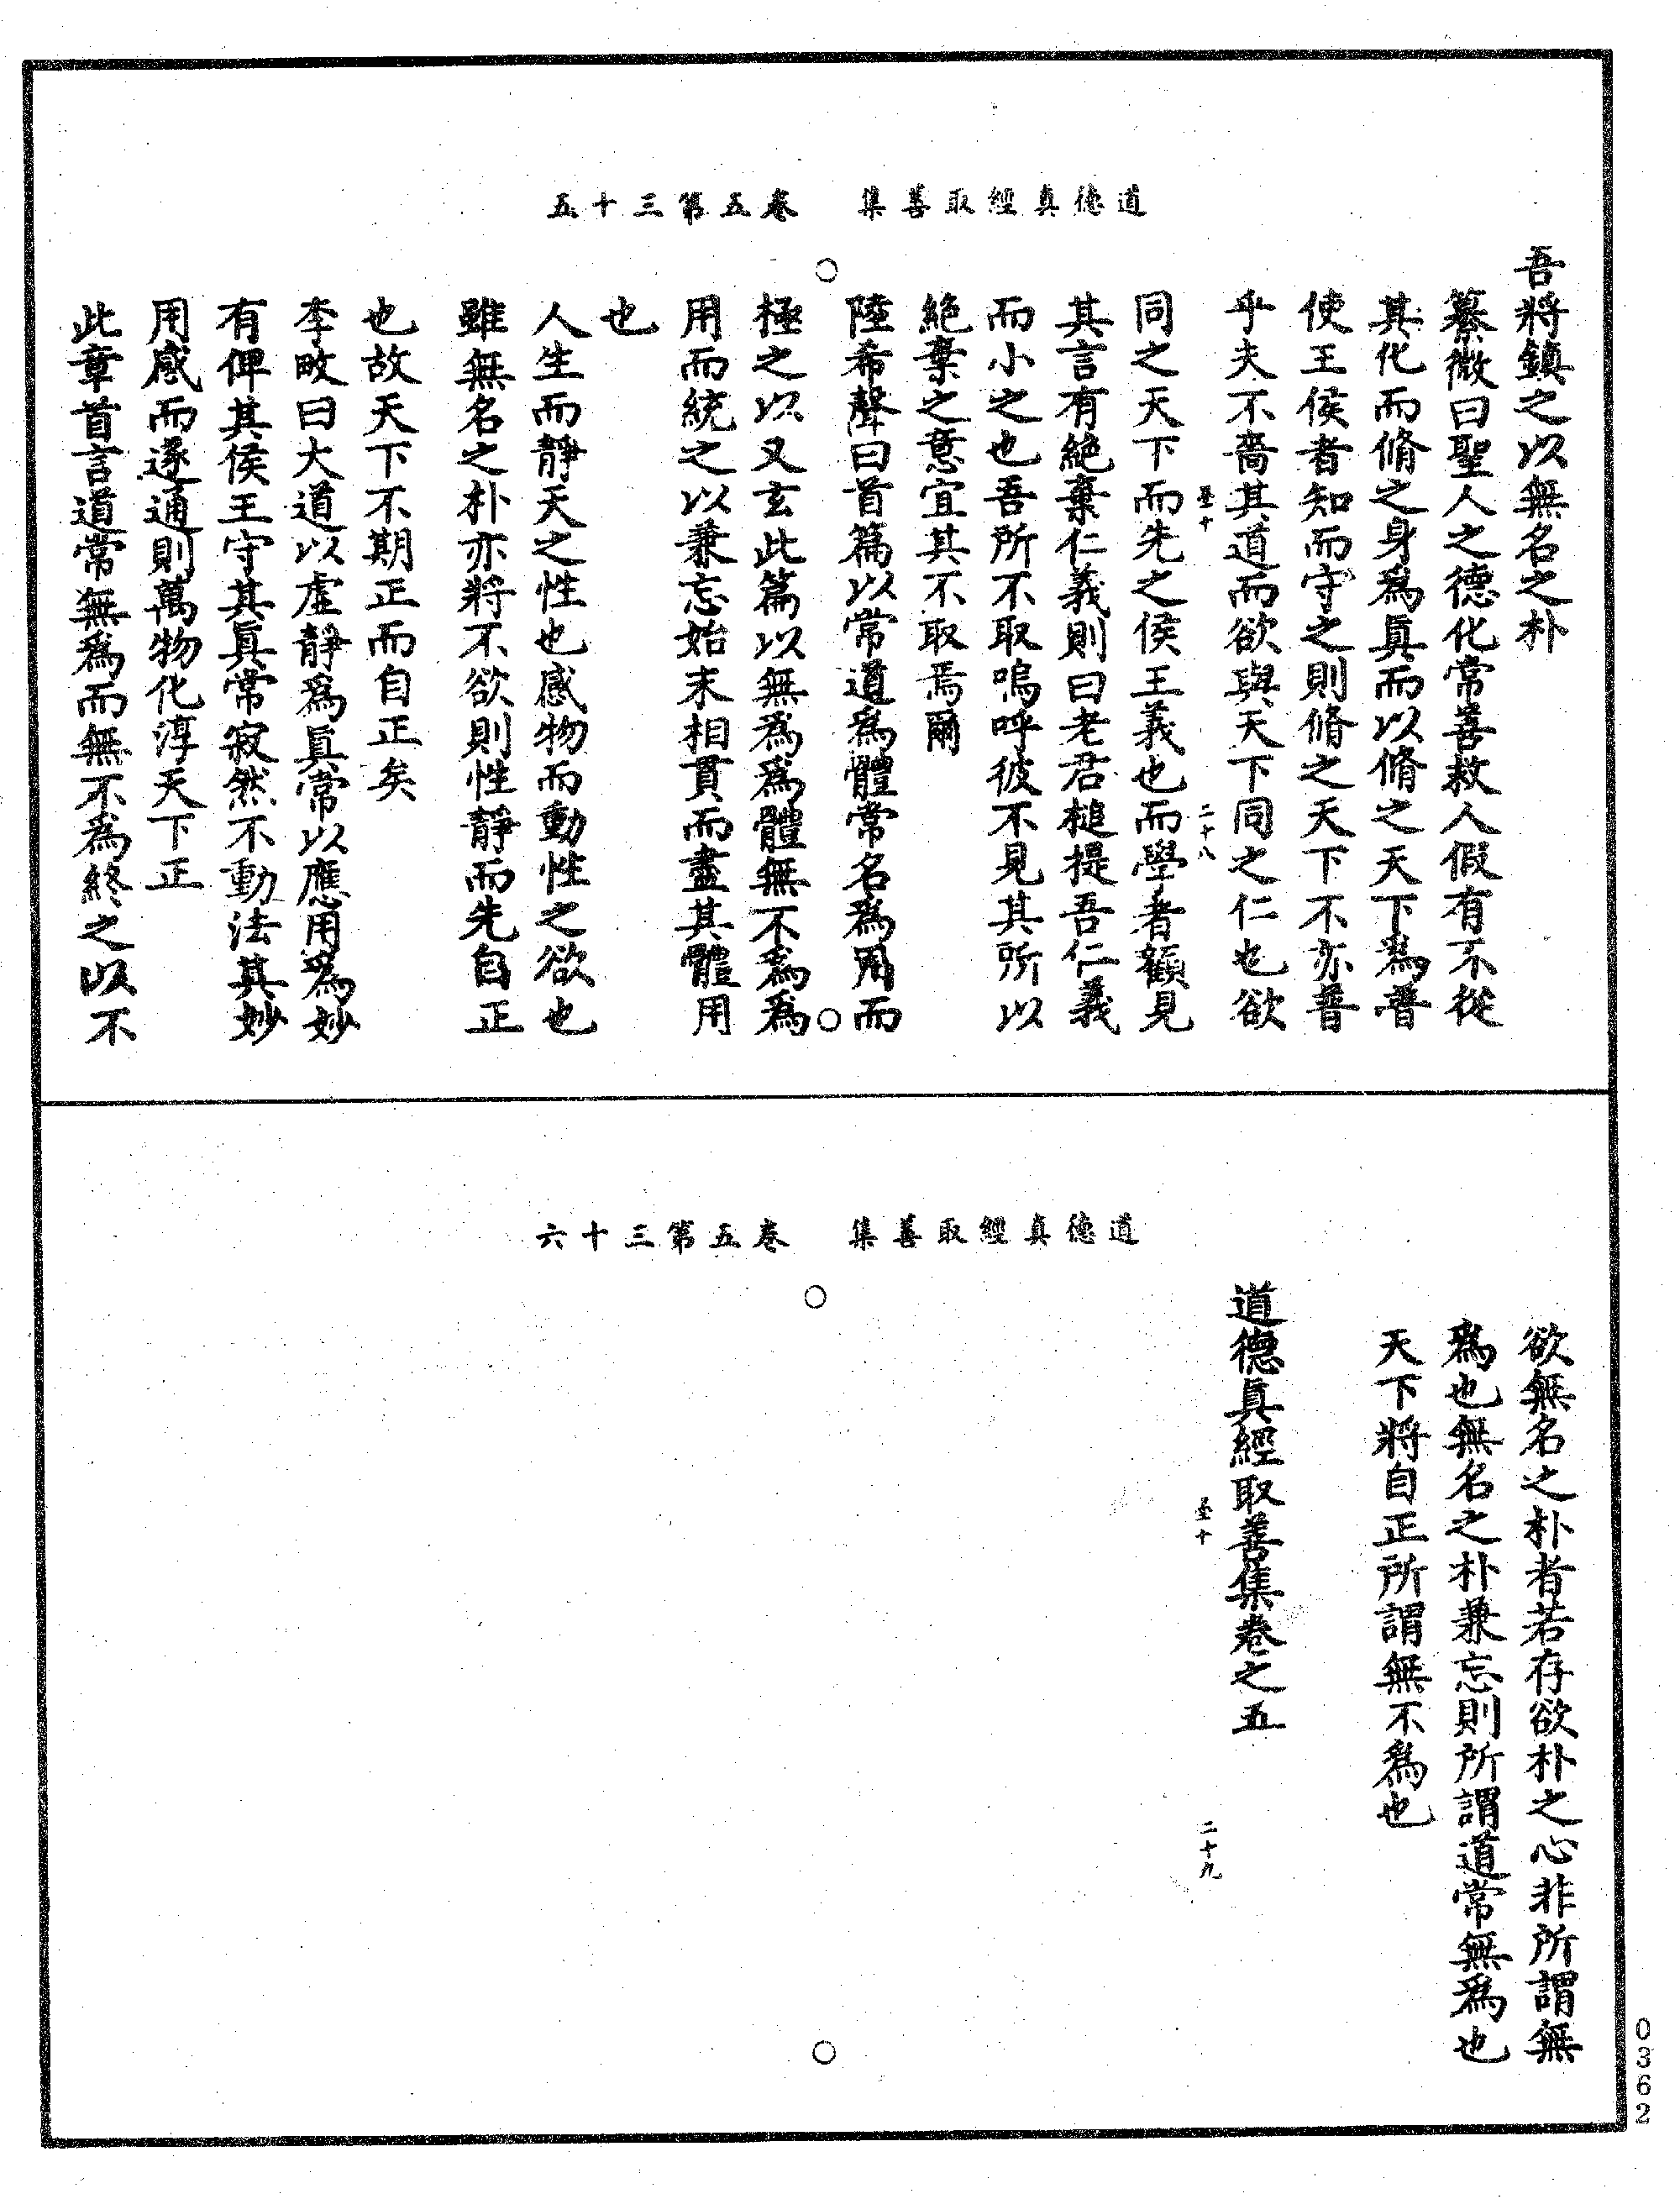 道德真經取善集　卷五第三十五
吾將鎮之以無名之朴
纂微曰聖人之德化常善救人假有不從
其化而脩之身爲眞而以脩之天下爲普
使王侯者知而守之則脩之天下不亦普
乎夫不嗇其道而欲與天下同之仁也欲
至十　二十八
同之天下而先之侯王義也而學者顧見
其言有絕棄仁義則曰老君槌提吾仁義
而小之也吾所不取嗚呼彼不見其所以
絕棄之意宜其不取焉爾
陸希聲曰首篇以常道爲體常名爲用而
極之以又玄此篇以無爲爲體無不爲爲
用而統之以兼忘始末相貫而盡其體用
也
人生而靜天之性也感物而動性之欲也
雖無名之朴亦將不欲則性靜而先自正
也故天下不期正而自正矣
李畋曰大道以虛靜爲眞常以應用爲妙
有俾其侯王守其眞常寂然不動法其妙
用感而遂通則萬物化淳天下正
此章首言道常無爲而無不爲終之以不
道德真經取善集　卷五第三十六
欲無名之朴者若存欲朴之心非所謂無
爲也無名之朴兼忘則所謂道常無爲也
天下將自正所謂無不爲也
道德眞經取善集卷之五
至十　二十九
0362